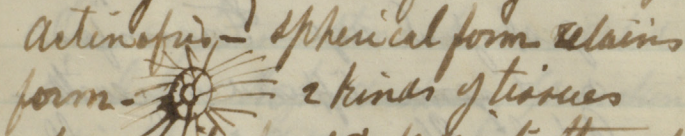 Actinofris - Spherical form retains
form - 2 kinds of tissues